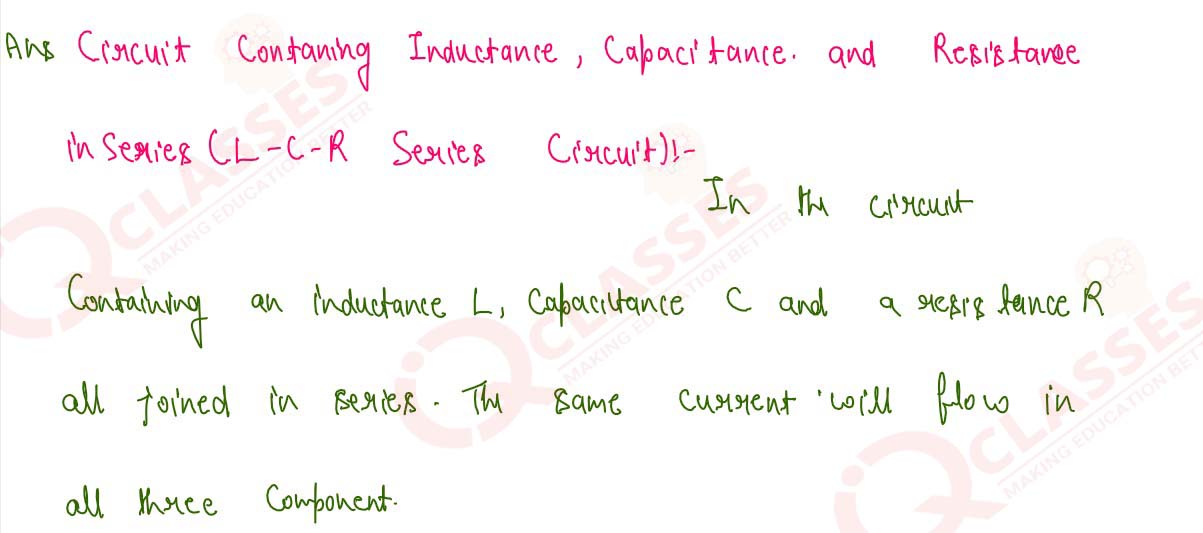 Ans Circuit Contaning Inductance, Capacitance. and Resistance
in Series (L-C-R Series Circuit):-
In the circuit
Containing an inductance L, Capacitance C and a resistance R
all joined in series. The same current will flow in
all three Component.
iQ CLASSES
MAKING EDUCATION BETTER
iQ CLASSES
MAKING EDUCATION BETTER
iQ CLASSES
MAKING EDUCATION BETTER